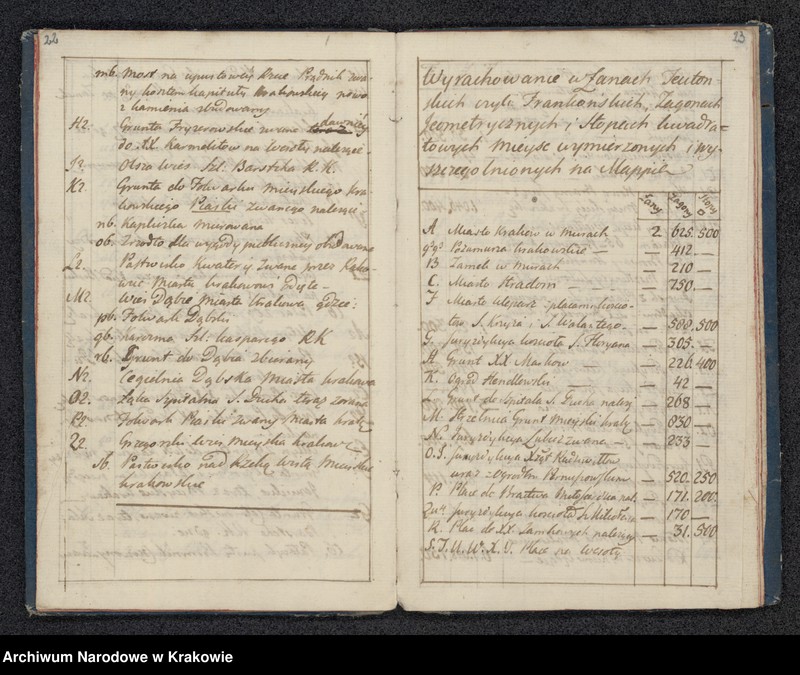 22
mb. Most na upustowey Rzce Prądnik zwa-
ny kosztem kapituły krakowskiey nowo
z kamienia zbudowany
H2. Grunta Fryzerowskie zwane dawniéy
do XX. Karmelitów na Wesoły należące
J2. Olsza wieś Szl. Barszcza R. K.
K2. Grunta do Folwarku mieyskiego kra-
kowskiego Piaski zwanego należące
nb. Kapliczka murowana
ob. Zrzódło dla wygody publiczney obudowane
L2. Pastwisko Kwatery zwane przez
Miasta krakowa
M2. Wieś Dąbie Miasta krakowa gdzie:
pb. Folwark Dąbski
qb. karczma Szl: kasparego RK
rb. Grunt do Dąbia zbierany
N2. Cegielnia Dąbska Miasta krakowa
O2. Łąka Szpitalna S. Ducha
P2. Folwark Piaski zwany Miasta krak:
Q2. Grzegorzki wieś Mieyska krakows:
sb. Pastwisko nad rzeką Wisłą Mieyskie
krakowskie
23
Wyrachowanie w Łanach Teuton-
skich czyli Frankońskich, Zagonach
Jeometrycznych i Stopach kwadra-
towych mieysc wymierzonych i wy-
szczegolnionych na Mappie
Łany Zagony Stopy □
A Miasto Kraków w murach 2 625. 500
Pozamurze krakowskie — — 412. —
B Zamek w Murach — 210 —
C. Miasto Stradom — — 750. —
F Miasto Kleparz z placami kościo-
łów S. Krzyża i S. Walentego. — 500. 500
G. Juryzdykcya kościoła S. Floryana — 305. —
H Grunt XX Markow — — 226. 400
K. Ogród Hendlowski — — 42 —
L Grunt do Szpitala S. Ducha należ: — 268 —
M. Strzelnica Grunt Mieyski krak: — 830 —
N. Juryzdykcya Lubicz zwana — — 233 —
O.J. Juryzdykcya Xżąt
wraz z Ogrodem — 520. 250
P. Place do Bractwa Miłosierdzia nal. — 171. 200
Juryzdykcya kościoła S. Mikołaja — 170 —
R. Plac do XX. Zamkowych należący — 31. 500
S. T. U. W. X. V. Place na Wesoły
Archiwum Narodowe w Krakowie